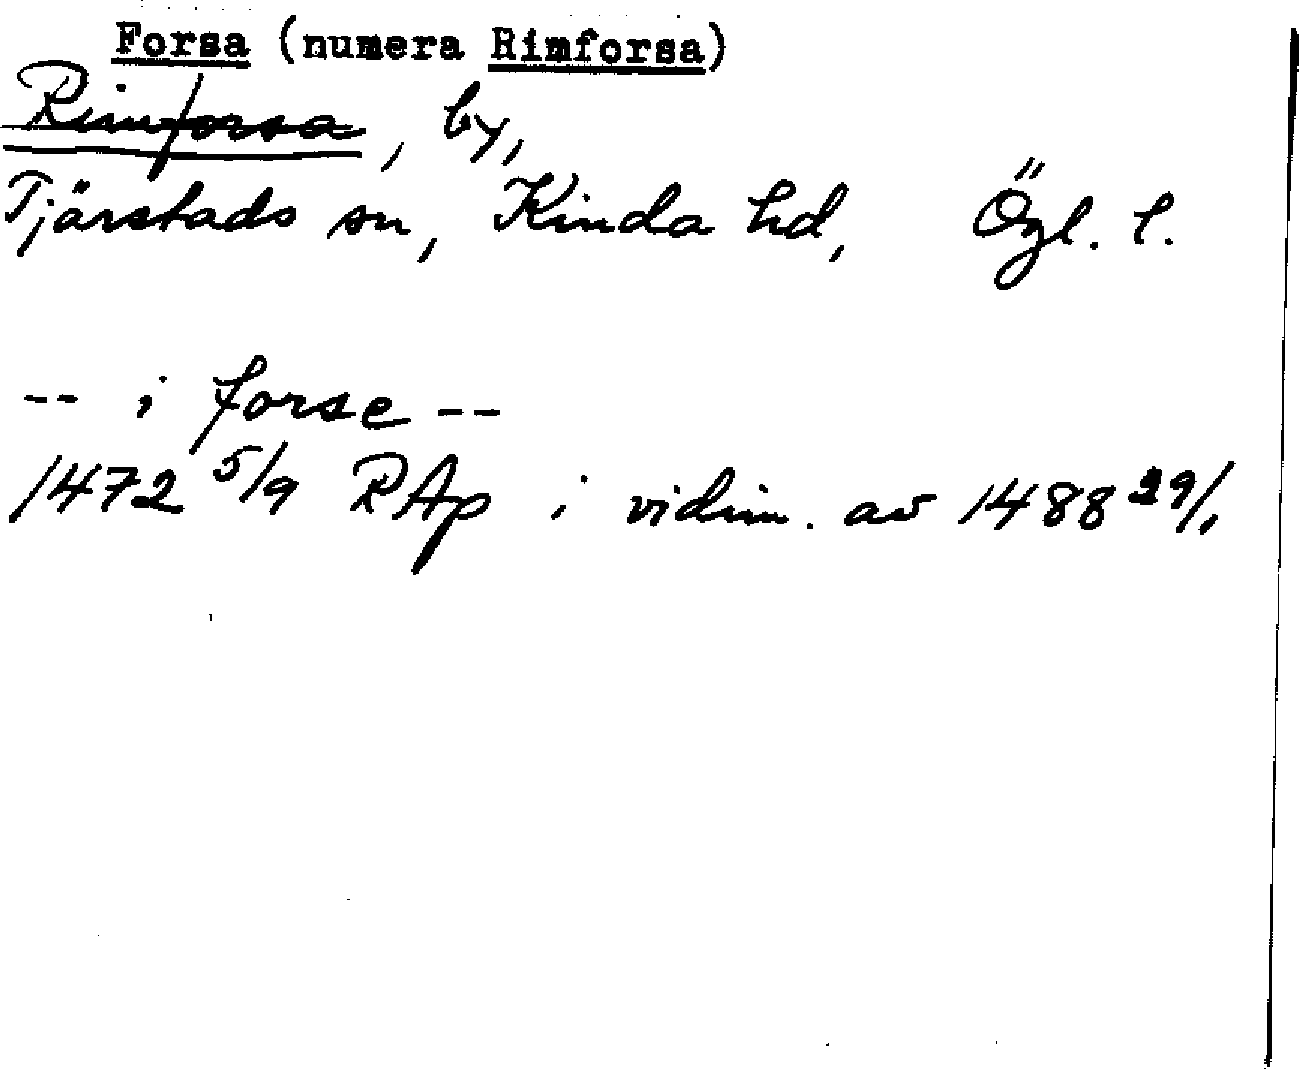 Forsa (numera Rimforsa)
Rimforsa, by,
Tjärstads sn, Kinda hd, Ögl. l.
-- i forse --
1472 5/9 RAp i vidim. av 1488 29/1